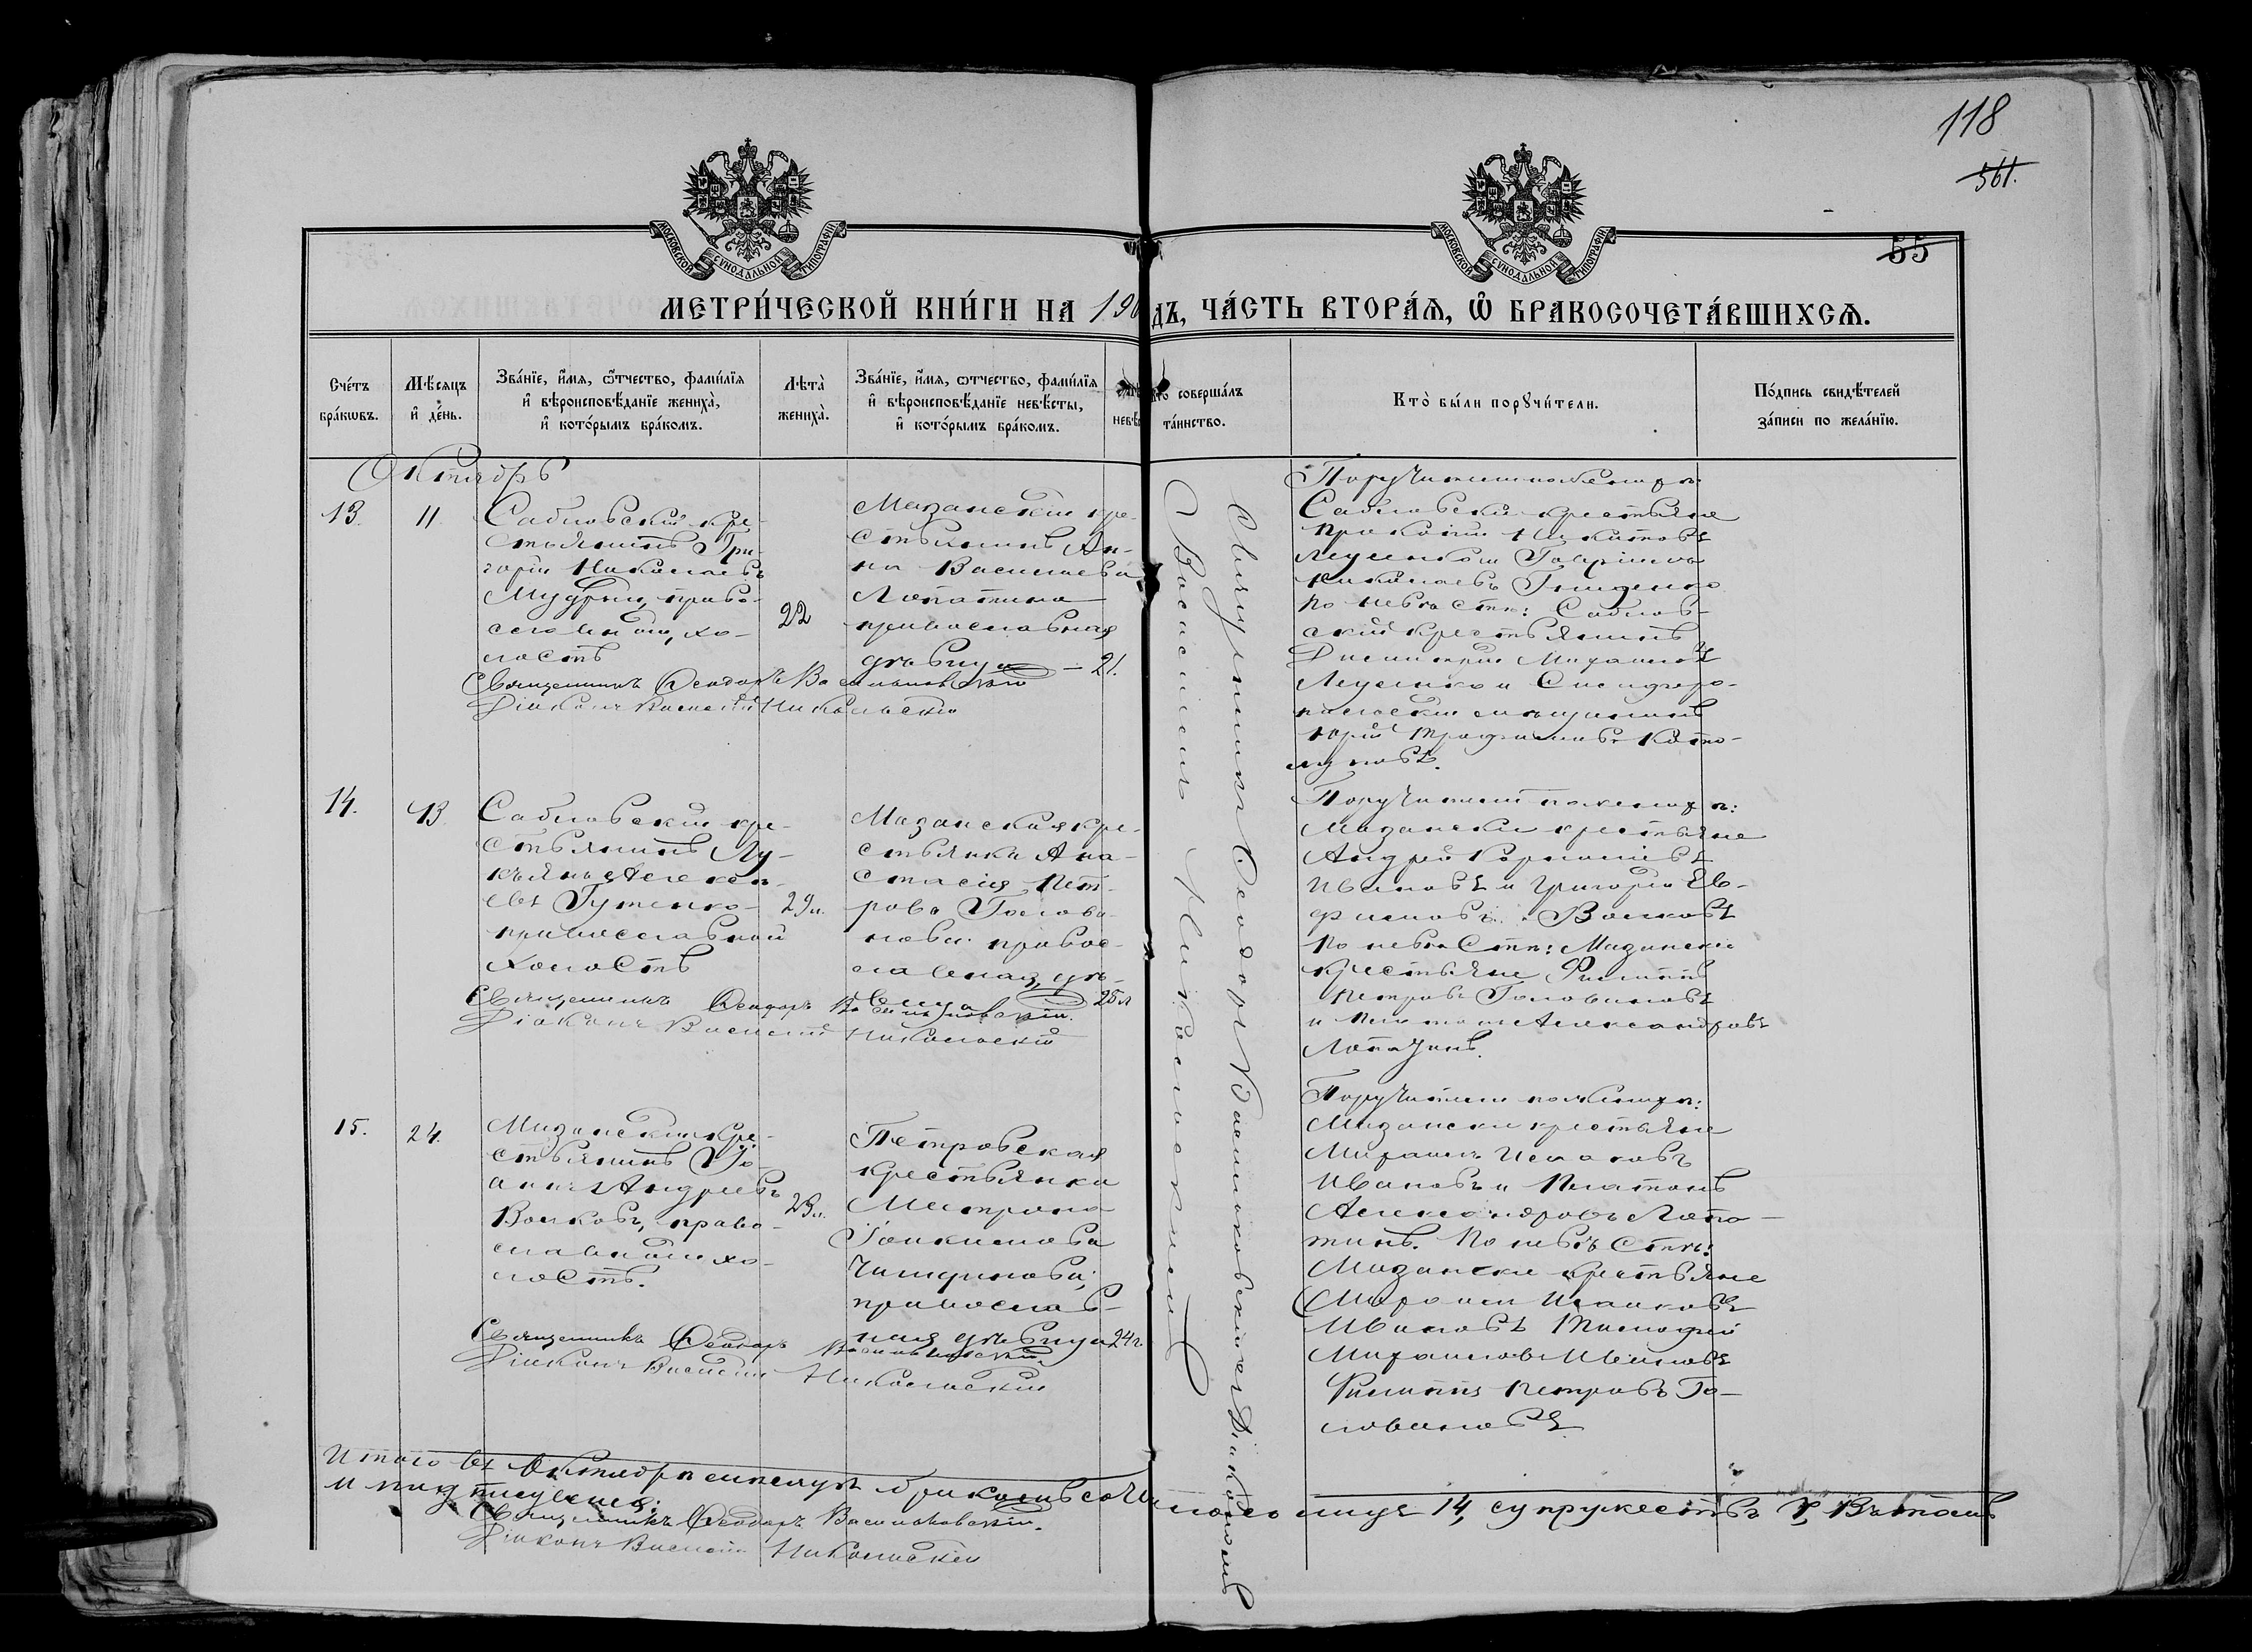 118
561.
55
МОСКОВСКОЙ СѴНОДАЛЬНОЙ ТИПОГРАФІИ
МОСКОВСКОЙ СѴНОДАЛЬНОЙ ТИПОГРАФІИ
МЕТРИ́ЧЕСКОЙ КНИ́ГИ НА 190 ДЪ, ЧА́СТЬ ВТОРА́Ѧ, Ѽ БРАКОСОЧЕТА́ВШИХСѦ.
Сче́тъ бра́кѡвъ.
Мѣ́сѧцъ и҆ де́нь.
Зва́нїе, и҆́мѧ, ѻ҆́тчество, фами́лїѧ
и҆ вѣроисповѣ́данїе жениха̀,
и҆ кото́рымъ бра́комъ.
Лѣта̀ жениха̀.
Зва́нїе, и҆́мѧ, ѻ҆́тчество, фами́лїѧ
и҆ вѣроисповѣ́данїе невѣ́сты,
и҆ кото́рымъ бра́комъ.
невѣ
Кто̀ соверша́лъ
та́инство.
Кто̀ бы́ли порꙋчи́тели.
По́дпись свидѣ́телей
за́писи по жела́нїю.
Октябрь
13.
11.
Сабловскій кре-
стьянинъ Гри-
горій Николаевъ
Мудрый, право-
славный, хо-
лостъ
22
Мазанскій кре-
стьянинъ Ан-
на Василиева
Лопатина
православная
дѣвица – 21.
Священникъ Ѳеодоръ Васильковскій
Діаконъ Василій Никольскій
Поручители по женихѣ
Сабловскіи крестьяне
Прокопій Никитовъ
Гавріилъ
Николаевъ
по невѣстѣ: Саблов-
скій крестьянинъ
Димитрій Михаиловъ
и Симферо-
польскій мѣщанинъ
Юрій Трофимовъ
14.
13.
Сабловскій кре-
стьянинъ Лу-
кьянъ Алексѣ-
евъ Гуменко
православный
холостъ
29 л.
Мазанская кре-
стьянка Ана-
стасія Пет-
рова Голова-
нова правос-
лавная, дѣ-
вица 25 л
Священникъ Ѳеодоръ Васильковскій.
Діаконъ Василій Никольскій
Поручители по женихѣ:
Мазанскіи крестьяне
Андрей Корниліевъ
Ивановъ и Григорій Ев-
фимовъ Волковъ
По невѣстѣ: Мазанскіе
крестьяне Филиппъ
Петровъ Головановъ
и Платонъ Александровъ
Лопатинъ.
15.
24.
Мазанскій кре-
стьянинъ Іо-
аннъ Андреевъ
Волковъ, право-
славный хо-
лостъ.
23 л.
Петровская
крестьянка
Матрона
Іоакимова
православ-
ная дѣвица 24 г.
Священникъ Ѳеодоръ Васильковскій.
Діаконъ Василій Никольскій
Поручители по женихѣ:
Мазанскіи крестьяне
Михаилъ Исааковъ
Ивановъ и Платонъ
Александровъ Лопа-
тинъ. По невѣстѣ:
Мазанскіе крестьяне
Исааковъ
Ивановъ Тимофей
Михаиловъ Ивановъ
Филиппъ Петровъ Го-
ловановъ
Священникъ Ѳеодоръ Васильковскій съ Діакономъ
Василіемъ Никольскимъ
Итого въ Октябрѣ мѣсяцѣ браковъ сочи лось лицъ 14, супружествъ 7, Въ томъ
и подписуемся:
Священникъ Ѳеодоръ Васильковскій.
Діаконъ Василій Никольскій